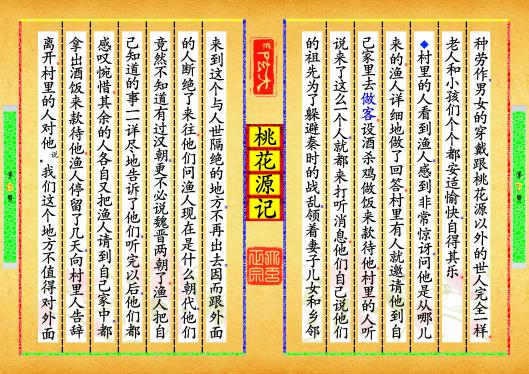 种劳作男女的穿戴跟桃花源以外的世人完全一样。
老人和小孩们个个都安适愉快自得其乐。
◆村里的人看到渔人感到非常惊讶问他是从哪儿
来的渔人详细地做了回答村里有人就邀请他到自
己家里去做客。设酒杀鸡做饭来款待他村里的人听
说来了这么一个人就都来打听消息他们自己说他们
的祖先为了躲避秦时的战乱领着妻子儿女和乡邻
桃花源记
来到这个与人世隔绝的地方不再出去因而跟外面
的人断绝了来往他们问渔人现在是什么朝代他们
竟然不知道有过汉朝更不必说魏晋两朝了渔人把自
己知道的事一一详尽地告诉了他们听完以后他们都
感叹惋惜其余的人各自又把渔人请到自己家中都
拿出酒饭来款待他渔人停留了几天向村里人告辞
离开村里的人对他说。我们这个地方不值得对外面